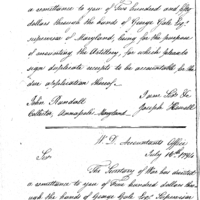 a remittance to you of Two hundred and fifty
dollars through the hands of George Gale Esq.
supervisor of Maryland, being for the purpose
of mounting the Artillery, for which please
sign duplicate receipts to be accountable for the
due application thereof.
I am Sir &c
John Randall
Joseph Howell
Collector, Annapolis, Maryland
W. D. Accountants Office
July 16th 1794
Sir
The Secretary of War has directed
a remittance to you of Five hundred dollars through
the hands of George Gale Esq. Supervisor